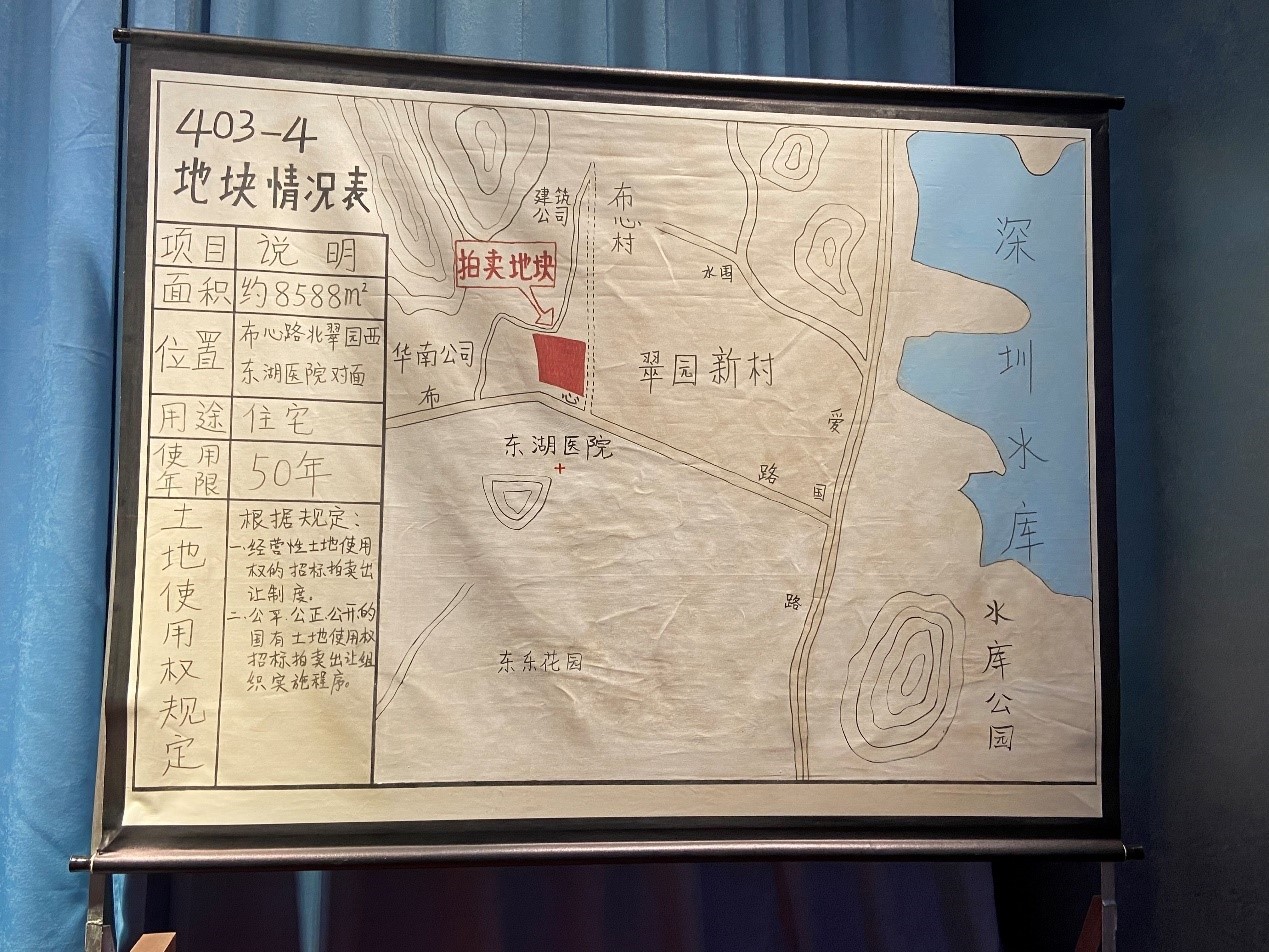 403-4
地块情况表
项目 说明
面积 约8588m²
位置 布心路北翠园西
东湖医院对面
用途 住宅
使用
年限
50年
土地使用权规定
根据规定：
一.经营性土地使用
权的招标拍卖出
让制度。
二.公平.公正.公开的
国有土地使用权
招标拍卖出让组
织实施程序。
建筑
公司
布心村
拍卖地块
水国
华南公司
翠园新村
布心路
东湖医院
爱国路
东乐花园
深圳水库
水库公园